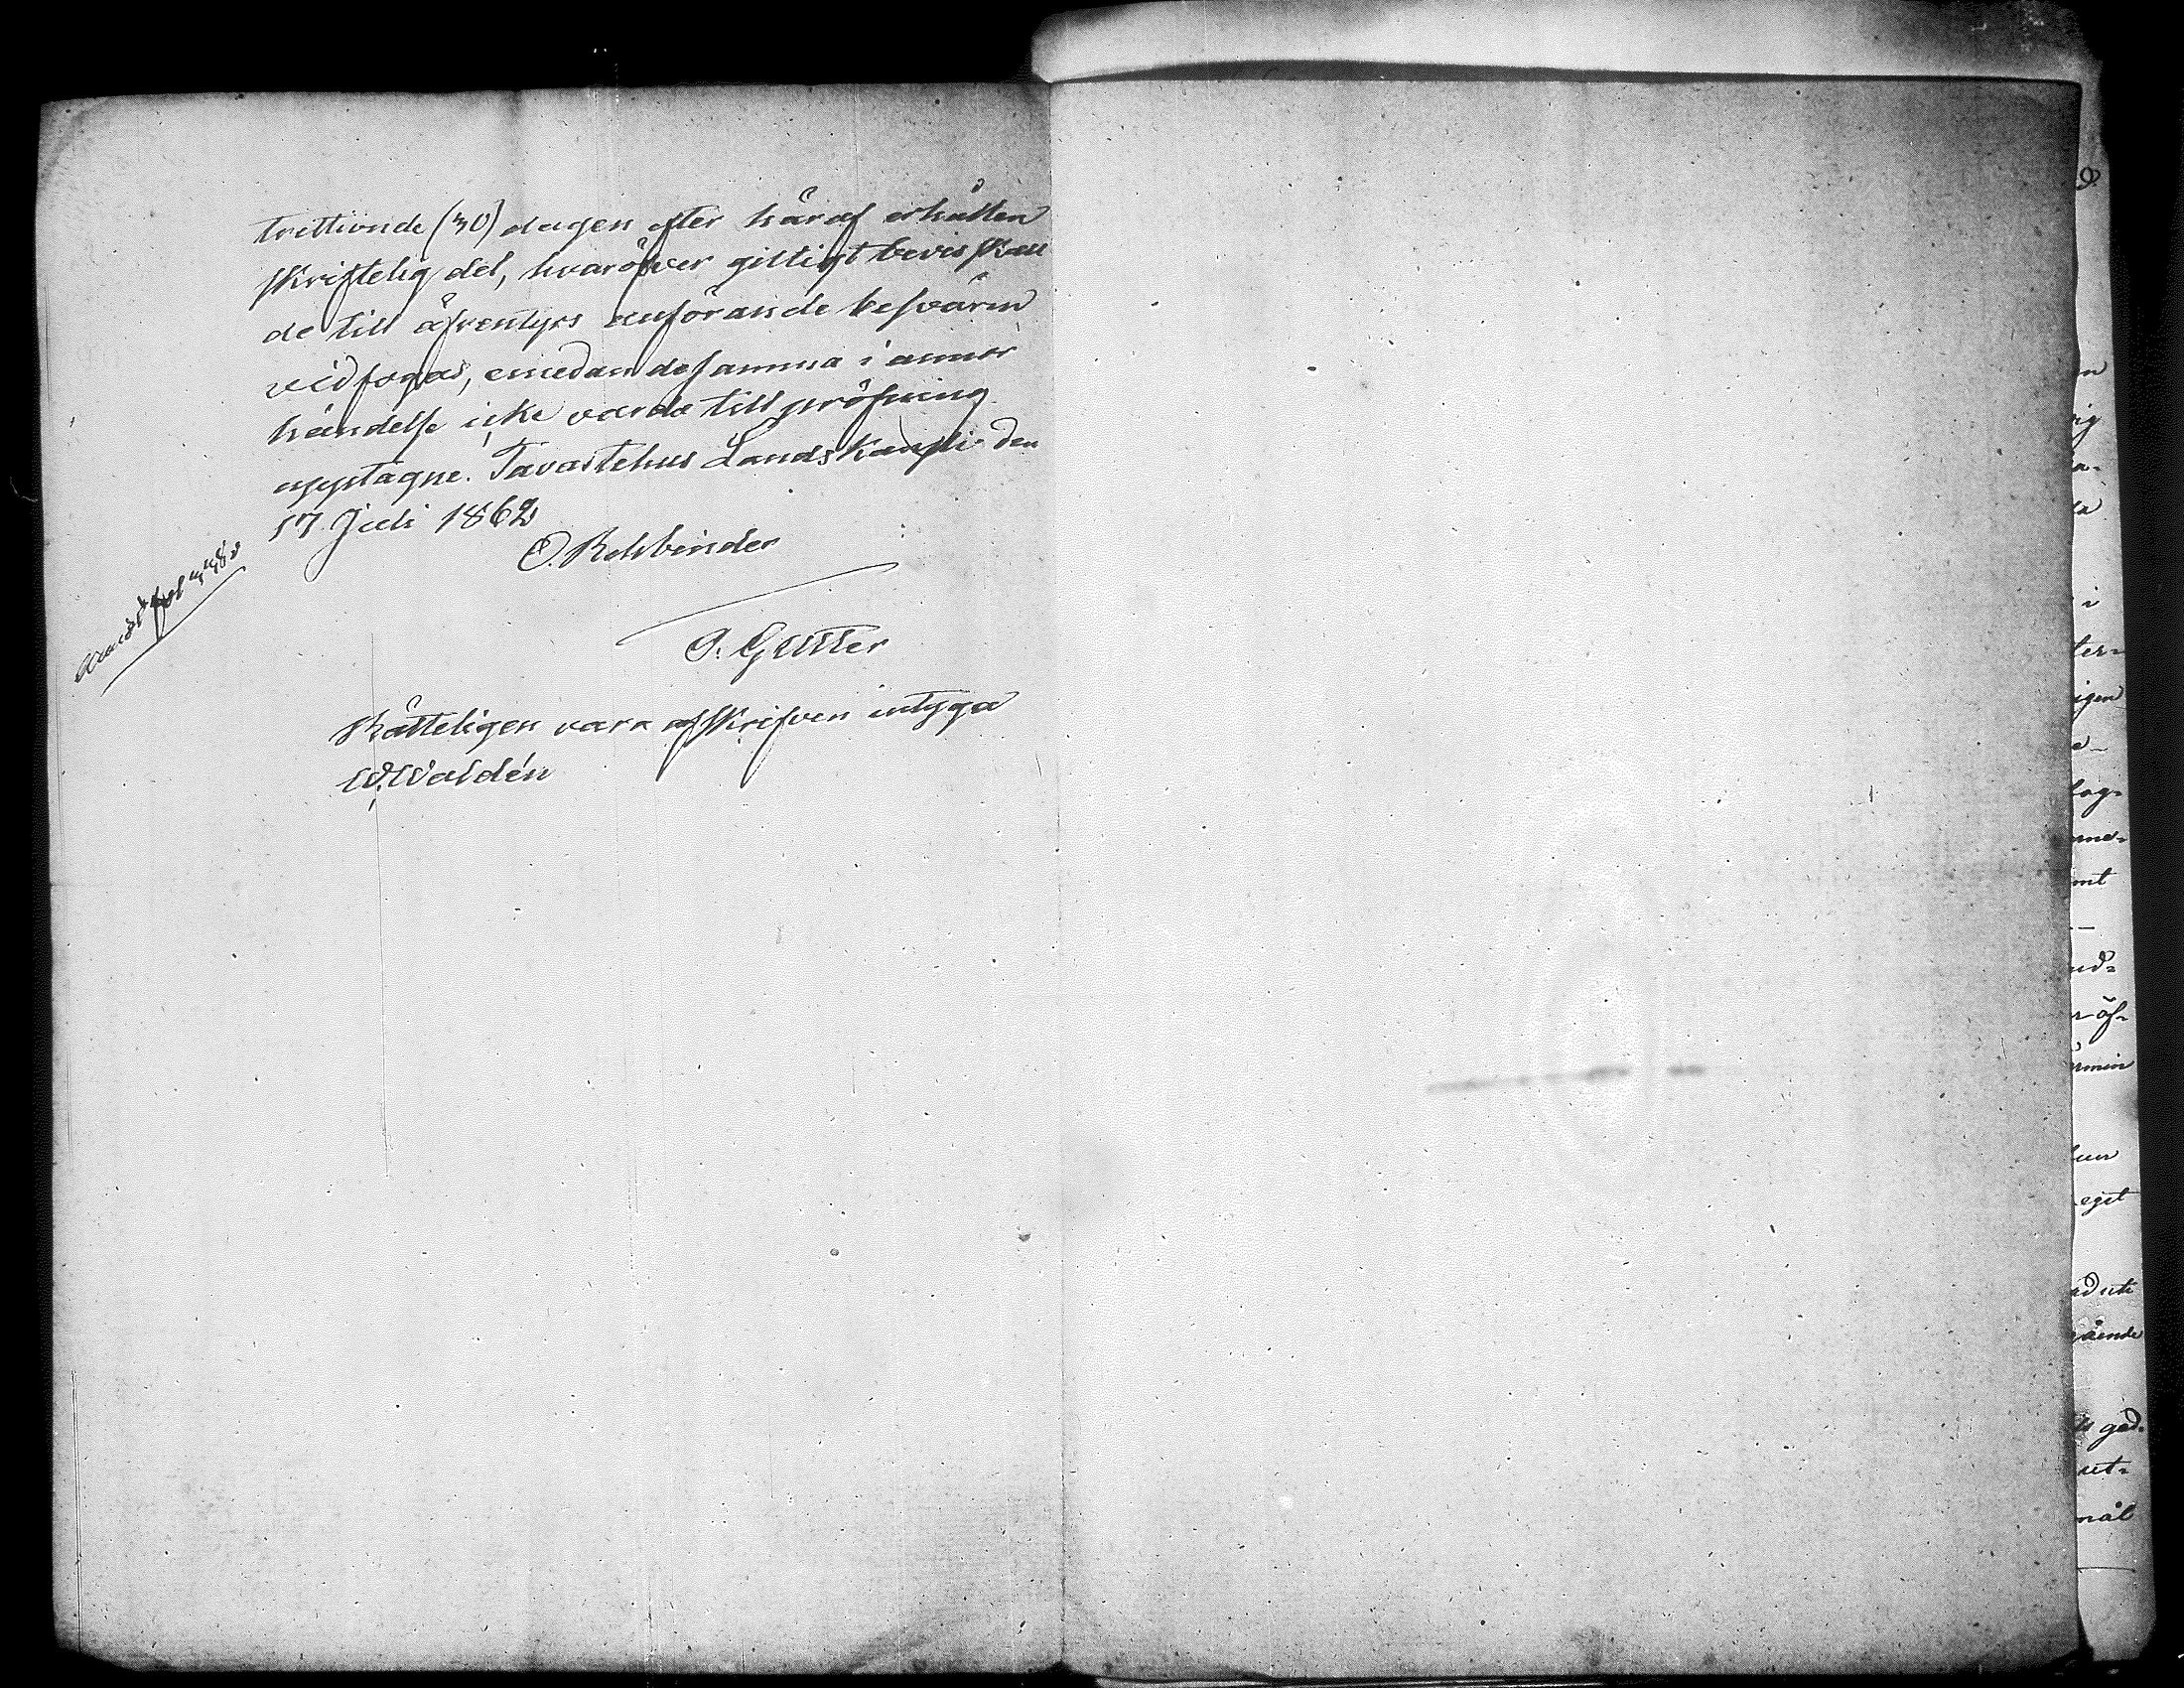 trettionde (30) dagen efter häraf erhållen
skriftelig del, hvaröfver giltigt bevis skall
de till äfventyrs anförande besvären
vidfogas, emedan desamma i annor
händelse icke varda till pröfning
upptagne. Tavastehus Landskansli den
17 Juli 1862
O. Rehbinder
Rätteligen vara afskrifven intyga
W. Waldén
ter-
igen
öf-
eget
ut-
mål